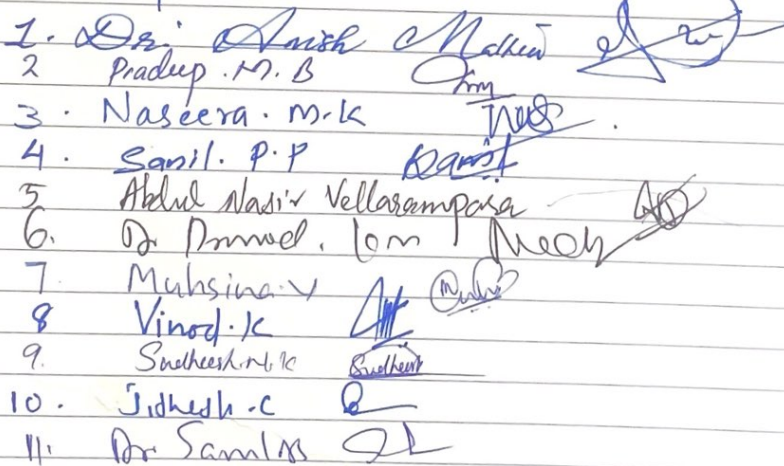 1. Dr. Anish Mathew
2 Pradeep.M.B
3. Naseera.M.K
4. Sanil.P.P
5 Abdul Nasir Vellarampara
6. Dr
7 Muhsina.V
8 Vinod.K
9. Sudheesh.M.K Sudheesh
10. Jidhesh.C
11. Dr